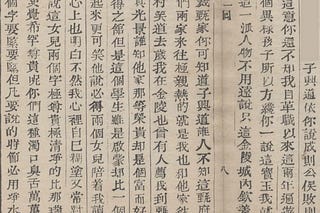 子興道依你說成則公侯敗則
這意你還不知我自革職以來這兩年遍
個異樣孩子所以方纔你一說這寶玉我
這一派人物不用遠說只這金陵城內欽差
二回 八
甄家你可知道子興道誰人不知這甄府
們兩家來往極親熱的就是我也和他家
村笑道去歲我在金陵也曾有人薦我到甄
其光景誰知他家那等榮貴却是個富而好
得之館但是這個學生雖是啟蒙却比一個
起來更可笑他說必得兩個女兒陪着我讀
心上也明白不然我心裡自己糊塗又常對
說這女兒兩個字極尊貴極清淨的比那瑞
更覺希罕尊貴呢你們這種濁口臭舌萬萬
個字要緊要緊但凡要說的時節必用淨水